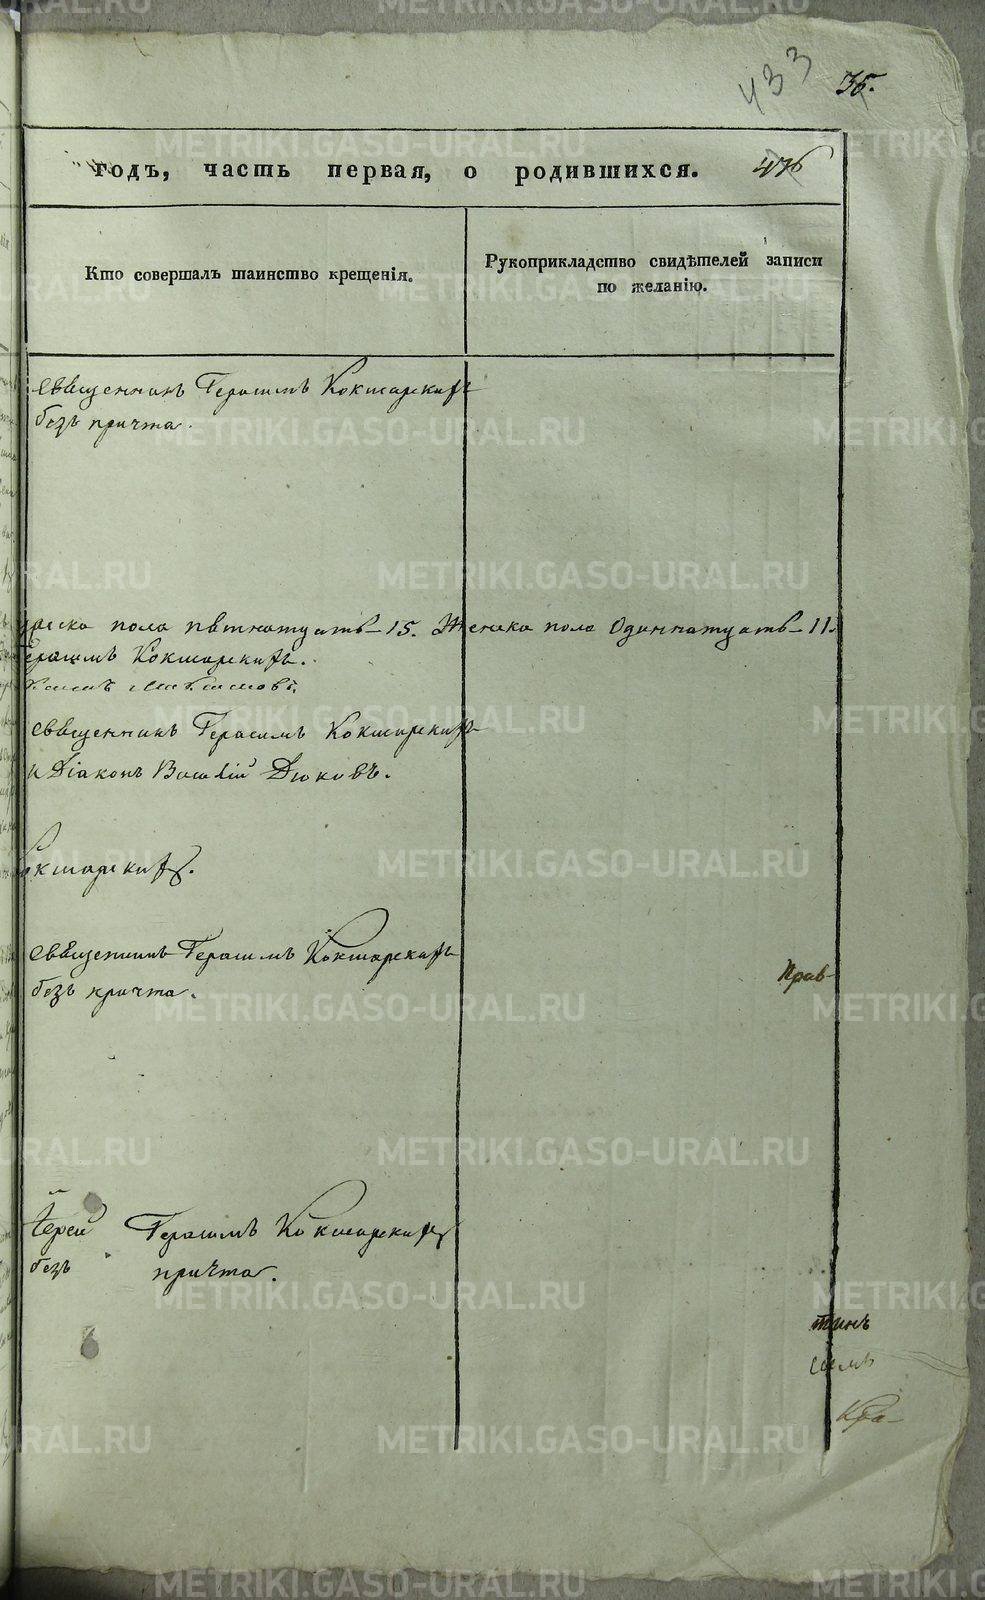 433
35.
годъ, часть первая, о родившихся.
476
Кто совершалъ таинство крещенія.
Рукоприкладство свидѣтелей записи
по желанію.
Священникъ Герасимъ Кокшарскихъ
безъ причта.
пола пятнатцать - 15. Женска пола одиннатцать - 11.
Герасимъ Кокшарскихъ.
Священникъ Герасимъ Кокшарскихъ
и Діаконъ Василій Дюковъ.
Кокшарскихъ.
Священникъ Герасимъ Кокшарскихъ
безъ причта.
Прав-
Іерей Герасимъ Кокшарскихъ
безъ причта.
тинъ
Кра-
METRIKI.GASO-URAL.RU